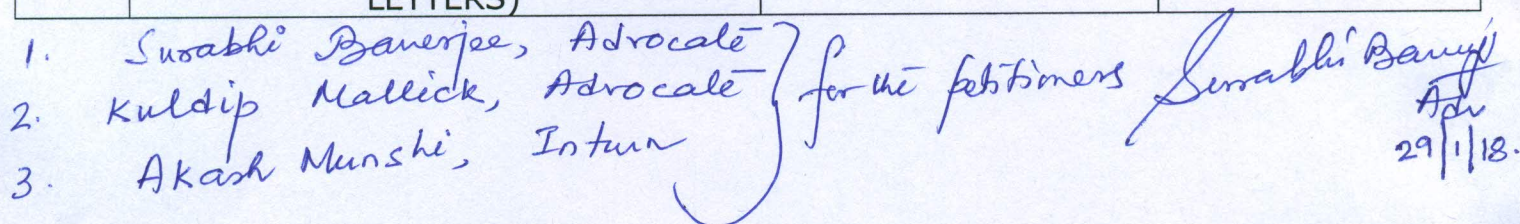 LETTERS)
1. Surabhi Banerjee, Advocate
2. Kuldip Mallick, Advocate
3. Akash Munshi, Intern
for the petitioners
Surabhi Banerji
Adv
29/1/18.